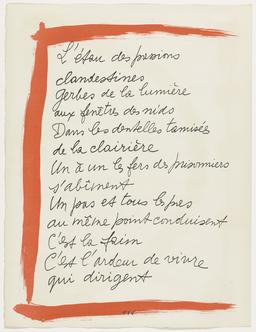 L'étau des passions
clandestines
Gerbes de la lumière
aux fenêtres des nids
Dans les dentelles tamisées
de la clairière
Un à un les fers des prisonniers
s'abîment
Un pas et tous les pas
au même point conduisent
C'est la faim
C'est l'ardeur de vivre
qui dirigent